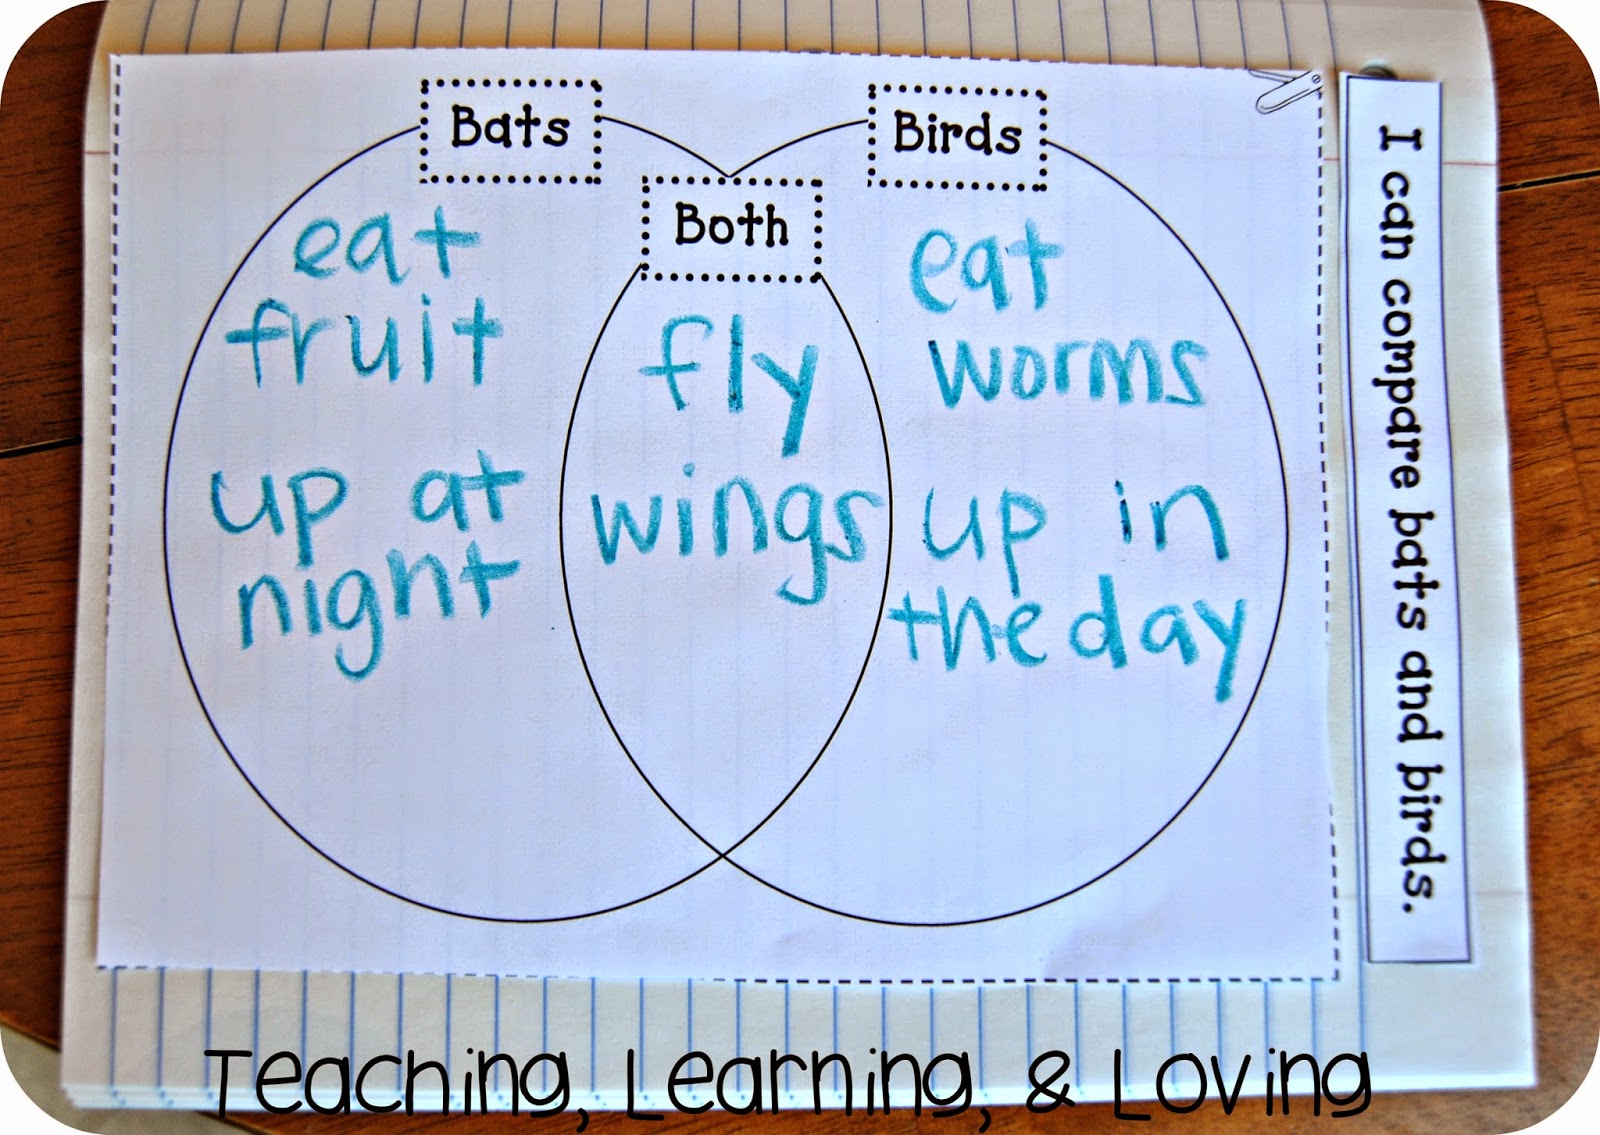 Bats
Birds
Both
eat
fruit
up at
night
fly
wings
eat
worms
up in
the day
I can compare bats and birds.
Teaching, Learning, & Loving